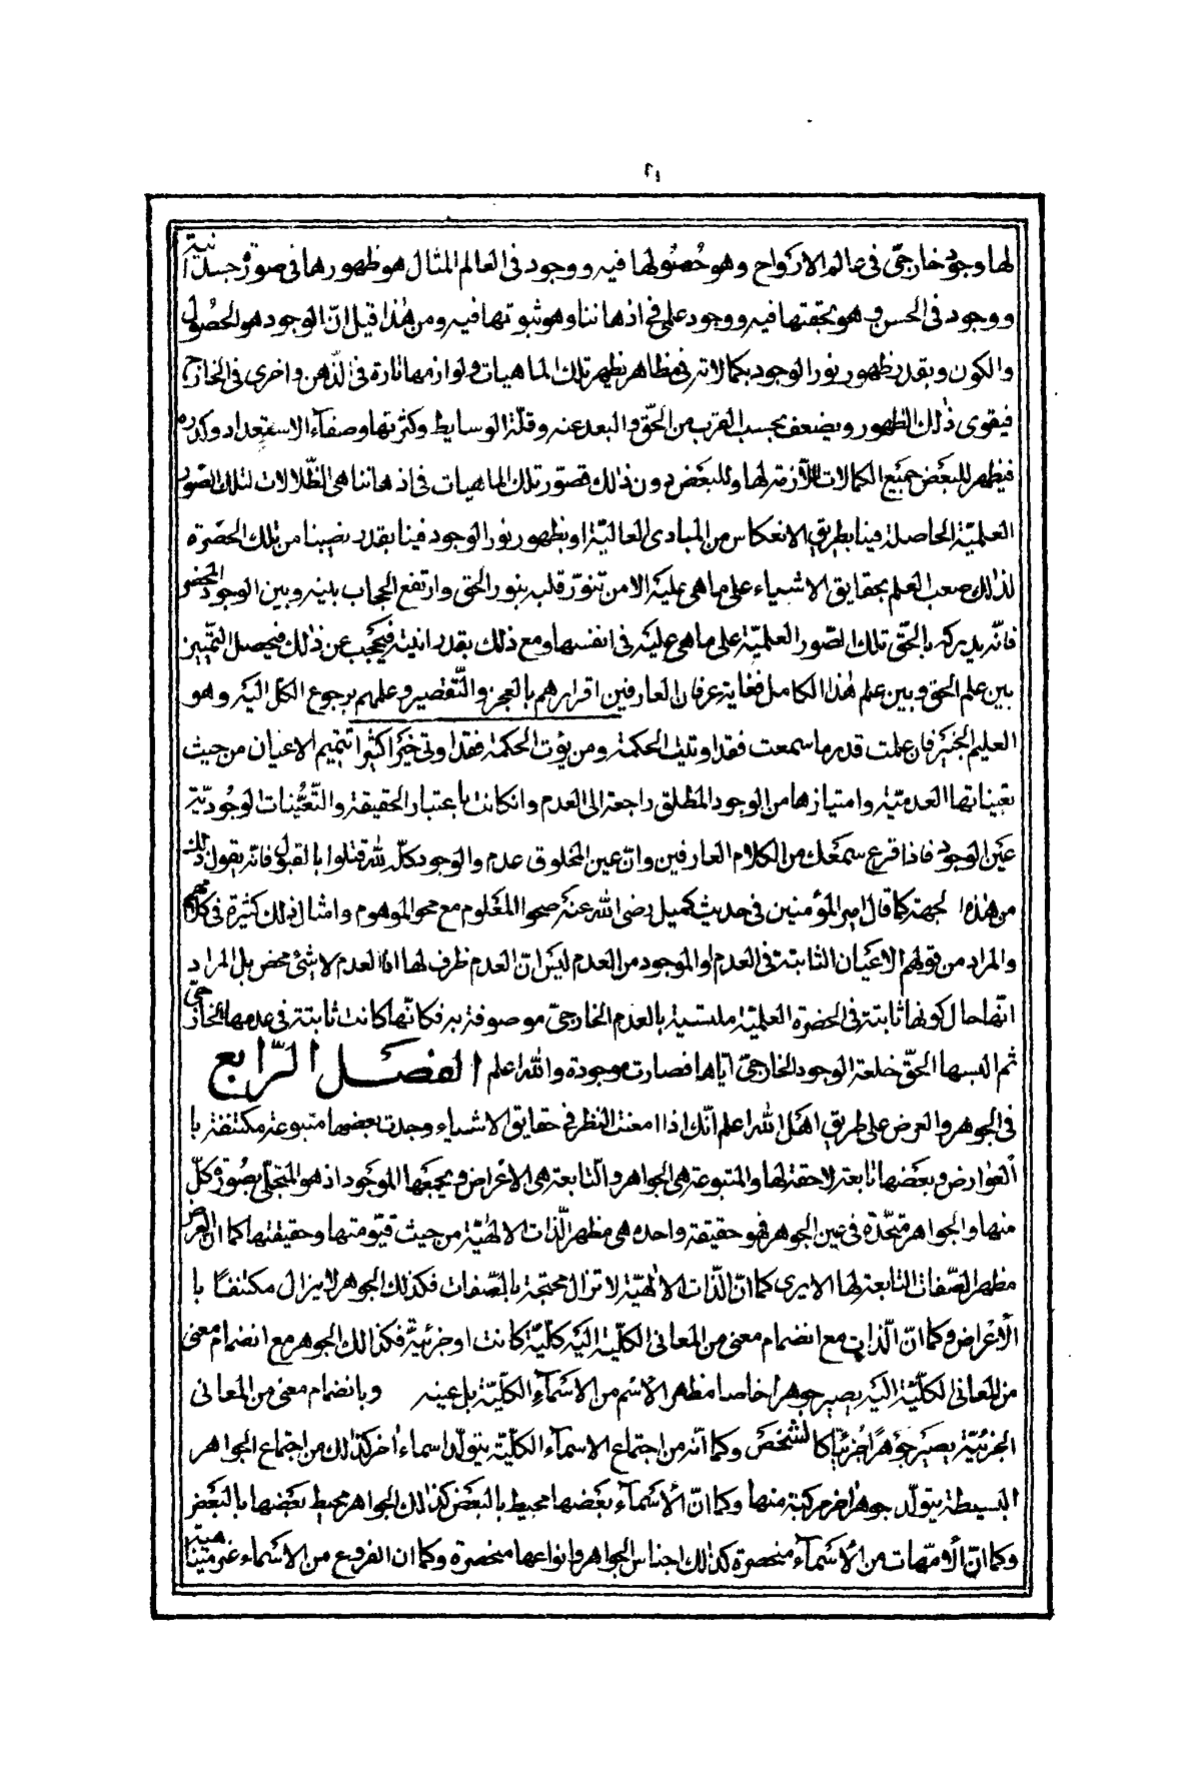 ٢١
لها وجود خارجىّ فى عالم الارواح وهو حُصُولها فيه ووجود فى العالم المثال هو ظهورها فى صورة جسدانية
ووجود فى الحس وهو تحققها فيه ووجود علمى فى اذهاننا وهو ثبوتها فيه ومن هٰذا قيل انّ الوجود هو الحصُول
والكون وبقدر ظهور نور الوجود بكمالاته فى مظاهره تظهر تلك الماهيات ولوازمها تارة فى الذّهن واخرى فى الخارج
فيقوى ذٰلك الظهور ويضعف بحسب القرب من الحقّ والبعد عنه وقلّة الوسايط وكثرتها وصفآء الاستعداد وكدره
فيظهر للبعَض جميَع الكمالات اللآزمة لها وللبعَض دون ذٰلك فصوَر تلك الماهيات فى اذهاننا هى الظّلالات لتلك الصّور
العلميّة الحاصلة فينا بطريق الانعكاس من المبادى العاليّة او بظهور نور الوجود فينا بقدر نصيبنا من تلك الحضرة
لذٰلك صعب العلم بحقايق الاشياء على ما هى عليَه الا من تنوّر قلبه بنور الحق وارتفع الحجاب بينه وبين الوجود المحض
فانّه يدركه بالحّق تلك الصّور العلميّة على ما هى عليَه فى انفسها ومع ذٰلك بقدر انيته فيحَجب عن ذٰلك فيحصل التّمييز
بين علم الحق وبين علم هٰذا الكامل فغاية عرفان العارفين اقرارهم بالعجز والتّقصير وعلمهم برجوع الكل اليَه وهو
العليم الخبَير فان علمت قدر ما سمعت فقد اوتيت الحكمة ومن يؤت الحكمة فقد اوتى خيَرا كثيَرا تتميم الاعيان من حيث
تعيناتها العدميّة وامتيازها من الوجود المطلق راجعة الى العدم وان كانت باعتبار الحقيقة والتّعيُّنات الوجُوديّة
عَين الوجود فاذا قرع سمعَك من الكلام العارفين وانّ عين المخلوق عدم والوجود كلّه لله قبلوا بالقبول فانّه يقول ذٰلك
من هذه الجهة كما قال امير المؤمنين فى حديث كميل رضى الله عنَه صحو المعَلوم مع محو الموهوم وامثال ذٰلك كثيرة فى كلامهم
والمراد من قولهم الاعَيان الثابتة فى العدم او الموجود من العدم ليَس انّ العدم ظرف لها اذ العدم لا شئ محض بل المراد
انّها حال كونها ثابتة فى الحضرة العلميّة ملتبسة بالعدم الخارجىّ موصوفة به فكانّها كانت ثابتة فى عدمها الخارجىّ
ثم البسها الحقّ خلعة الوجود الخارجىّ اياها فصارت موجودة والله اعلم الفصَل الرّابع
فى الجوهر والعرض على طريق اهَل الله اعلم انّك اذا امعنت النظر فى حقايق الاشياء وجدت بعضها متبوعة مكتنفة با
لعوارض وبعَضها تابعة لاحقة لها والمتبوعة هى الجواهر والتّابعة هى الاعَراض ويجمعَها الموَجود اذ هو المتجلّى بصُورة كلّ
منها والجواهر متّحدة فى عين الجوهر فهو حقيقة واحده هى مظهر الذّات الالهٰيّة من حيث قيّومتها وحقيقتها كما انّ العرض
مظهر الصّفات التابعة لها الا يرى كما انّ الذّات الالٰهيّة لا تزال محتجبة بالصّفات فكذٰلك الجوهر لا يزال مكتنفًا با
لاعَراض وكما انّ الذّات مع انضمام معنى من المعانى الكلّية اليَه كلّيّة كانت او جزئيّة فكذالك الجوهر مع انضمام معنى
من المعانى الكلّيّة اليَه يصير جوهرا خاصا مظهر الاسَم من الاسَمآءِ الكلّيّة بل عينه وبانضمام معنى من المعانى
الجزئيّة يصيَر جوَهرًا جُزئيًّا كالشخصَ وكما انّه من اجتماع الاسمآء الكلّيّة يتولّد اسماءٌ اخر كذٰلك من اجتماع الجواهر
البَسيطة يتولّد جوهرا خر مركبة منها وكما انّ الاسَمآء بعَضها محيط بالبَعض كذٰلك الجواهر محيط بعَضها بالبَعَض
وكما انّ الامّهات من الاسَمآء منحصرة كذٰلك اجناس الجواهر وانواعها منحصرة وكما ان الفروع من الاسَماء غير متناهية